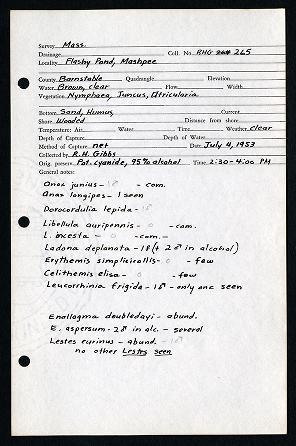 Survey Mass.
Drainage Coll. No. RHG 265
Locality Flashy Pond, Mashpee
County Barnstable Quadrangle Elevation
Water Brown, clear Flow Width
Vegetation Nymphaea, Juncus, Utricularia
Bottom Sand, Humus Current
Shore Wooded Distance from shore
Temperature: Air Water Time Weather clear
Depth of Capture Depth of Water
Method of Capture net Date July 4, 1953
Collected by R.H. Gibbs
Orig. preserv. Pot. cyanide, 95% alcohol Time 2:30-4:00 PM
General notes:
Anax junius - - com.
Anax longipes - 1 seen
Dorocordulia lepida -
Libellula auripennis - 0 - com.
L. incesta - 0 - com.
Ladona deplanata - 1♂ (+ 2♂ in alcohol)
Erythemis simplicicollis - 0 - few
Celithemis elisa - 0 - few
Leucorrhinia frigida - 1♂ - only one seen
Enallagma doubledayi - abund.
E. aspersum - 2♂ in alc. - several
Lestes eurinus - abund.
no other Lestes seen